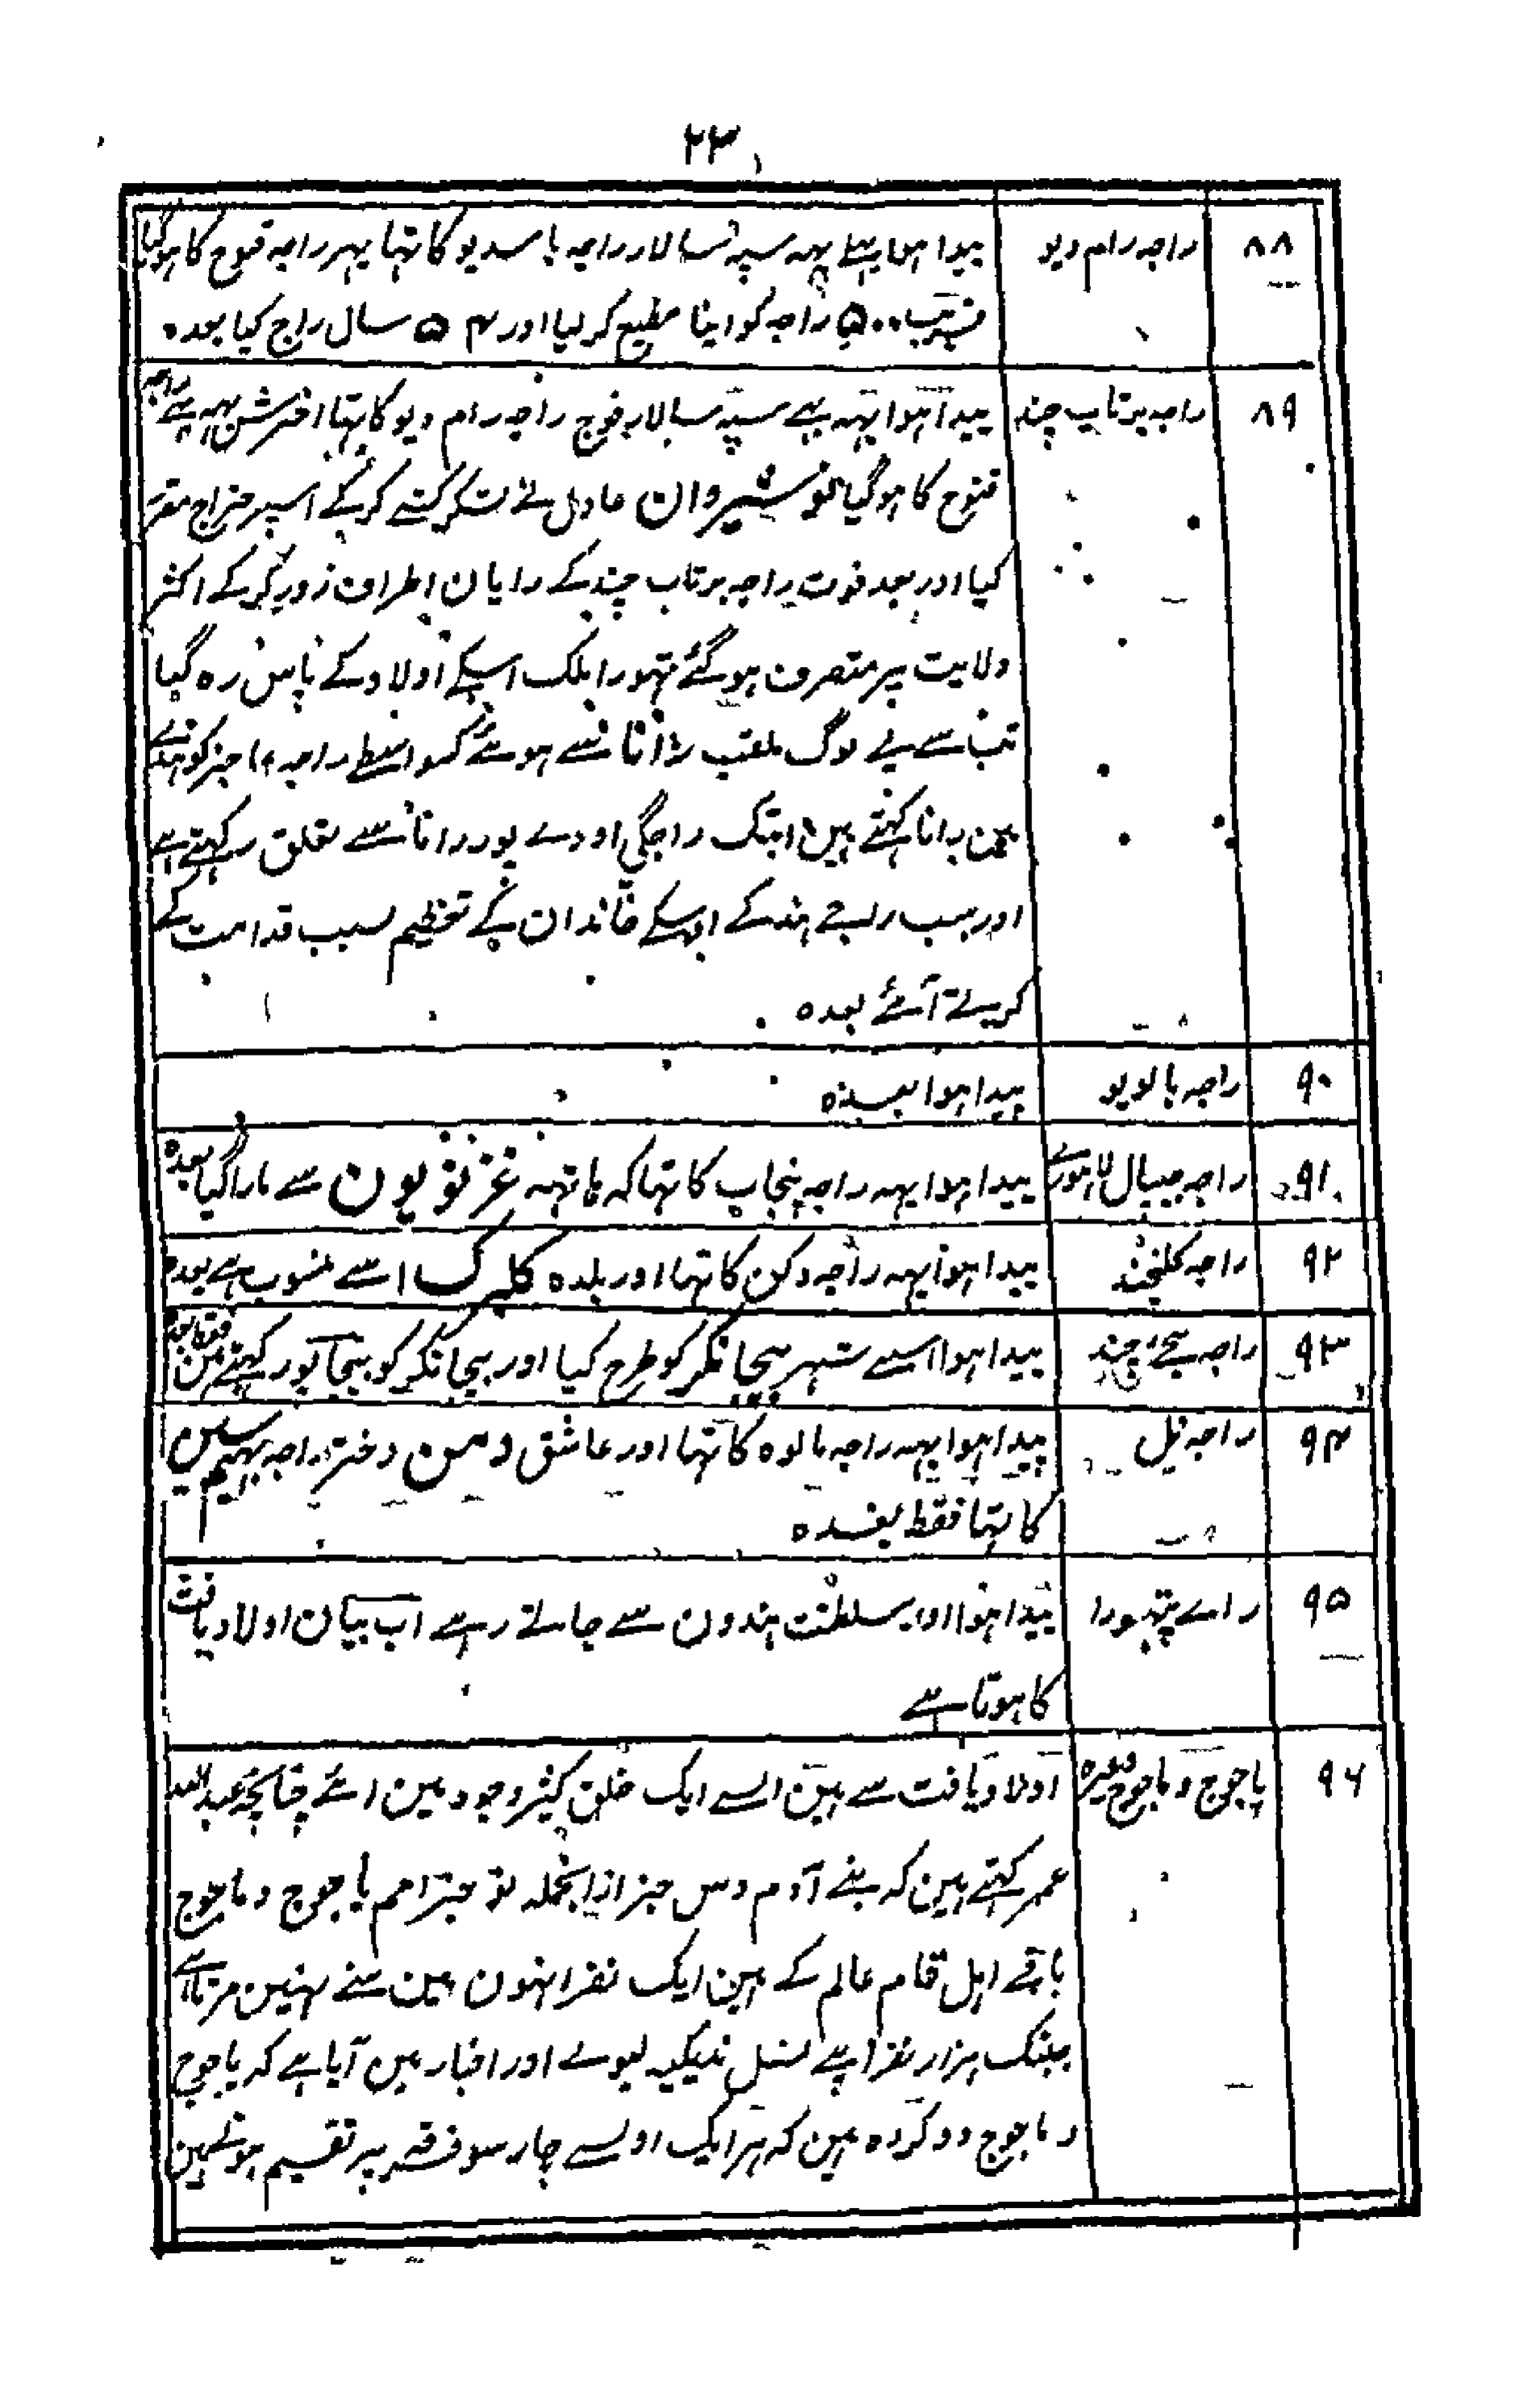 ۲۳
۸۸ راجہ رام دیو پیدا ہوا پہلے یہہ سپہ سالار راجہ باسدیو کا تہا پہر راجہ قنوج کا ہوگیا
قریب ۵۰۰ راجہ کو اپنا مطیع کرلیا اور ۵۴ سال راج کیا بعدہ
۸۹ راجہ پرتاب چند پیدا ہوا یہہ بہے سپہ سالار فوج راجہ رام دیو کا تہا اخرش یہہ بہے راجہ
قنوج کا ہوگیا نوشیروان عادل نے لشکر کشے کرکے اسپر خراج مقرر
کیا اور بعد فوت راجہ پرتاب چند کے رایان اطراف زور کرکے اکثر
ولایت پر متصرف ہوگئے تہورا ملک اسکے اولاد کے پاس رہ گیا
تب سے یے لوگ ملقب رانا سے ہوئے کسواسطے راجہ عاجز کو ہندے
مین رانا کہتے ہین ابتک راجگی اودے پور رانا سے تعلق رکہتے ہے
اور سب راجے ہند کے اسکے خاندان کے تعظیم بسبب قدامت کے
کرتے آئے بعدہ
۹۰ راجہ بالدیو پیدا ہوا بعدہ
۹۱ راجہ جیپال لاہورے پیدا ہوا یہہ راجہ پنجاب کا تہا کہ ہاتہہ غزنویون سے مارا گیا بعدہ
۹۲ راجہ کلچند پیدا ہوا یہہ راجہ دکن کا تہا اور بلدہ کلبرک اسے منسوب ہے بعدہ
۹۳ راجہ بیجے چند پیدا ہوا اسنے شہر بیجانگر کو طرح کیا اور بیجانگر کو بیجاپور کہتے ہین فقط بعدہ
۹۴ راجہ نیل پیدا ہوا یہہ راجہ مالوہ کا تہا اور عاشق دمن دختر راجہ بہیم سین
کا تہا فقط بعدہ
۹۵ راے پتہورا پیدا ہوا اور سلطنت ہندون سے جاتے رہے اب بیان اولاد یافث
کا ہوتا ہے
۹۶ یاجوج و ماجوج وغیرہ اولاد یافت سے ہین اسے ایک خلق کثیر وجود مین ائے چنانچہ عبداللہ
عمر کہتے ہین کہ بنے آدم دس جز ازانجملہ نو جز امم یاجوج و ماجوج
باقے اہل تمام عالم کے ہین ایک نفر انہون مین سے نہین مرتا ہے
جبتک ہزار نفر اپنے نسل ندیکہ لیوے اور اخبار مین آیا ہے کہ یاجوج
و ماجوج دو گروہ ہین کہ ہر ایک اونسے چار سو فرقہ پر تقسیم ہوتے ہین